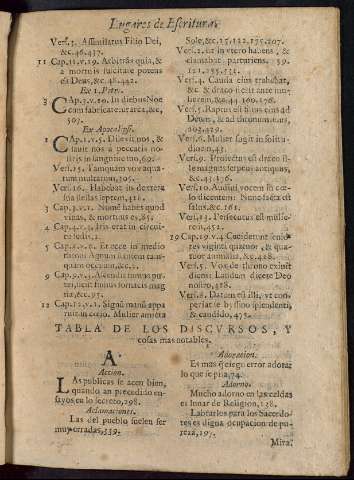 Lugares de Escritura.
Vers.3. Assimilatus Filio Dei,
&c.46.437.
Cap.11.v.19. Arbitrás quia, &
a mortuis suscitate potens
est Deus, &c.48.442.
Ex 1. Petr.
3 Cap.3.v.20. In diebus Noe
cum fabricaretur arca, &c,
507.
Ex Apocalypsi.
1 Cap.1.v.5. Dilexit nos, &
lauit nos a peccatis no-
stris in sanguine suo, 69.
Vers.15. Tamquam vox aqua-
rum multarum, 305.
Vers.16. Habebat in dextera
sua stellas septem, 318.
2 Cap.3.v.1. Nomē habes quod
viuas, & mortuus es, 85.
4 Cap.4.v.3. Iris erat in circui-
tu sedis,
5 Cap.5.v.6. Et ecce in medio
tronum Agnum stantem tam-
quam occisum, &c.
9 Cap.9.v.2. Ascendit fumus pu-
tei, sicut fumus fornacis mag-
na, &c.95.
12 Cap.12.v.1. Signū magnū appa-
ruit in coelo. Mulier amicta
Sole, &c.17.122.175.207.
Vers.2. Et in vtero habens, &
clamabat parturiens. 59.
121.235.531.
Vers.4. Cauda eius trahebat,
&c. & draco stetit ante mu-
lierem, &c.44.160.178.
Vers.5. Raptus est filius eius ad
Deum, & ad thronum eius,
203.429.
Vers.6. Mulier fugit in solitu-
dinem, 43.
Vers.9. Proiectus est draco il-
le magnus serpens antiquus,
&c.43.176.
Vers.10. Audiui vocem in coe-
lo dicentem: Nunc facta est
salus, &c.161.
Vers.13. Persecutus est mulie-
rem, 452.
19 Cap.19.v.4. Ceciderunt senio-
res viginti quatuor, & qua-
tuor animalia, &c.428.
Vers.5. Vox de throno exiuit
dicens: Laudem dicite Deo
nostro, 318.
Vers.8. Datum est illi, vt coo-
periat se byssino splendenti,
& candido, 475.
TABLA DE LOS DISCVRSOS, Y
cosas mas notables.
A
Accion.
Las publicas se acen bien,
quando an precedido en-
sayos en lo secreto, 298.
Aclamaciones.
Las del pueblo suelen ser
muy erradas, 339.
Adoracion.
Es mas q̃ ciego error adorar
lo que se pisa, 74.
Adorno.
Mucho adorno en las caldas
es lunar de Religion, 138.
Labrarlos para los Sacerdo-
tes es digna ocupacion de pu-
reza, 197.
Mira.